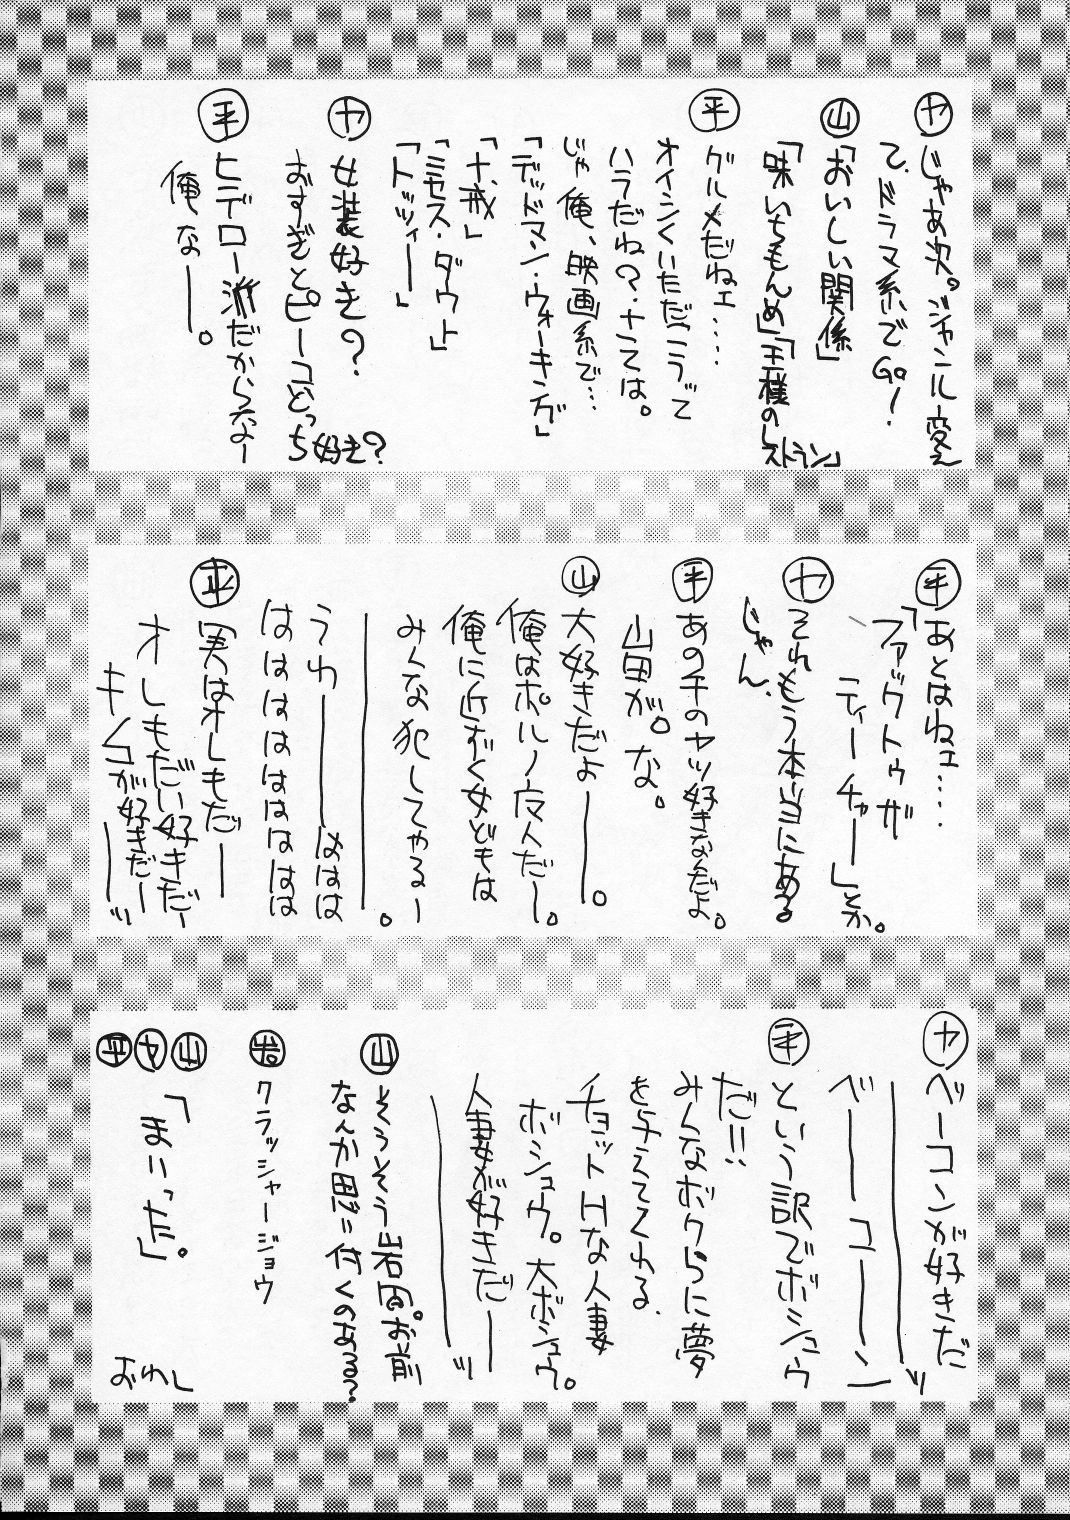 ヤ じゃあ次。ジャンル変え
て、ドラマ系でGo!
山 「おいしい関係」
「味いちもんめ」「王様の
レストラン」
平 グルメだねェ……
オイシくいただこうって
ハラだね?・・・こては。
じゃ俺、映画系で…
「デッドマン・ウォーキング」
「十戒」
「ミセス・ダウト」
「トッツィー」
ヤ 女装好き?
おすぎとピーコどっ
ち好き?
平 ヒデロー派だからなー
俺なー。
平 あとはねェ……
「ファックトゥザ
ティーチャー」とか。
ヤ それもう本当にある
じゃん。
平 あの手のヤツ好きなんだよ。
山田が。な。
山 大好きだよー。
俺はポルノ友人だー。
俺に近ずく女どもは
みんな犯してやるー。
うわーははは
はははははははは
平 実はオレもだー
オレもだい好きだー
キムが好きだーッ
ヤ ベーコンが好きだーッ
ベーコーン
平 という訳でボンジュウ
だ!!
みんなボクらに夢
を与えてくれる。
チョットHな人妻
ボンジュウ。大ボンジュウ。
人妻が好きだーッ
山 そうそう岩田。お前
なんか思い付くのある?
岩 クラッシャージョウ
山ヤ平 「まいった。」
おわし